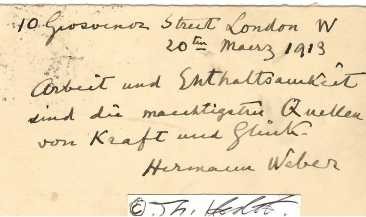 10 Grosvenor Street London W
20ten Maerz 1913
Arbeit und Enthaltsamkeit
sind die maechtigsten Quellen
von Kraft und Glück.
Hermann Weber